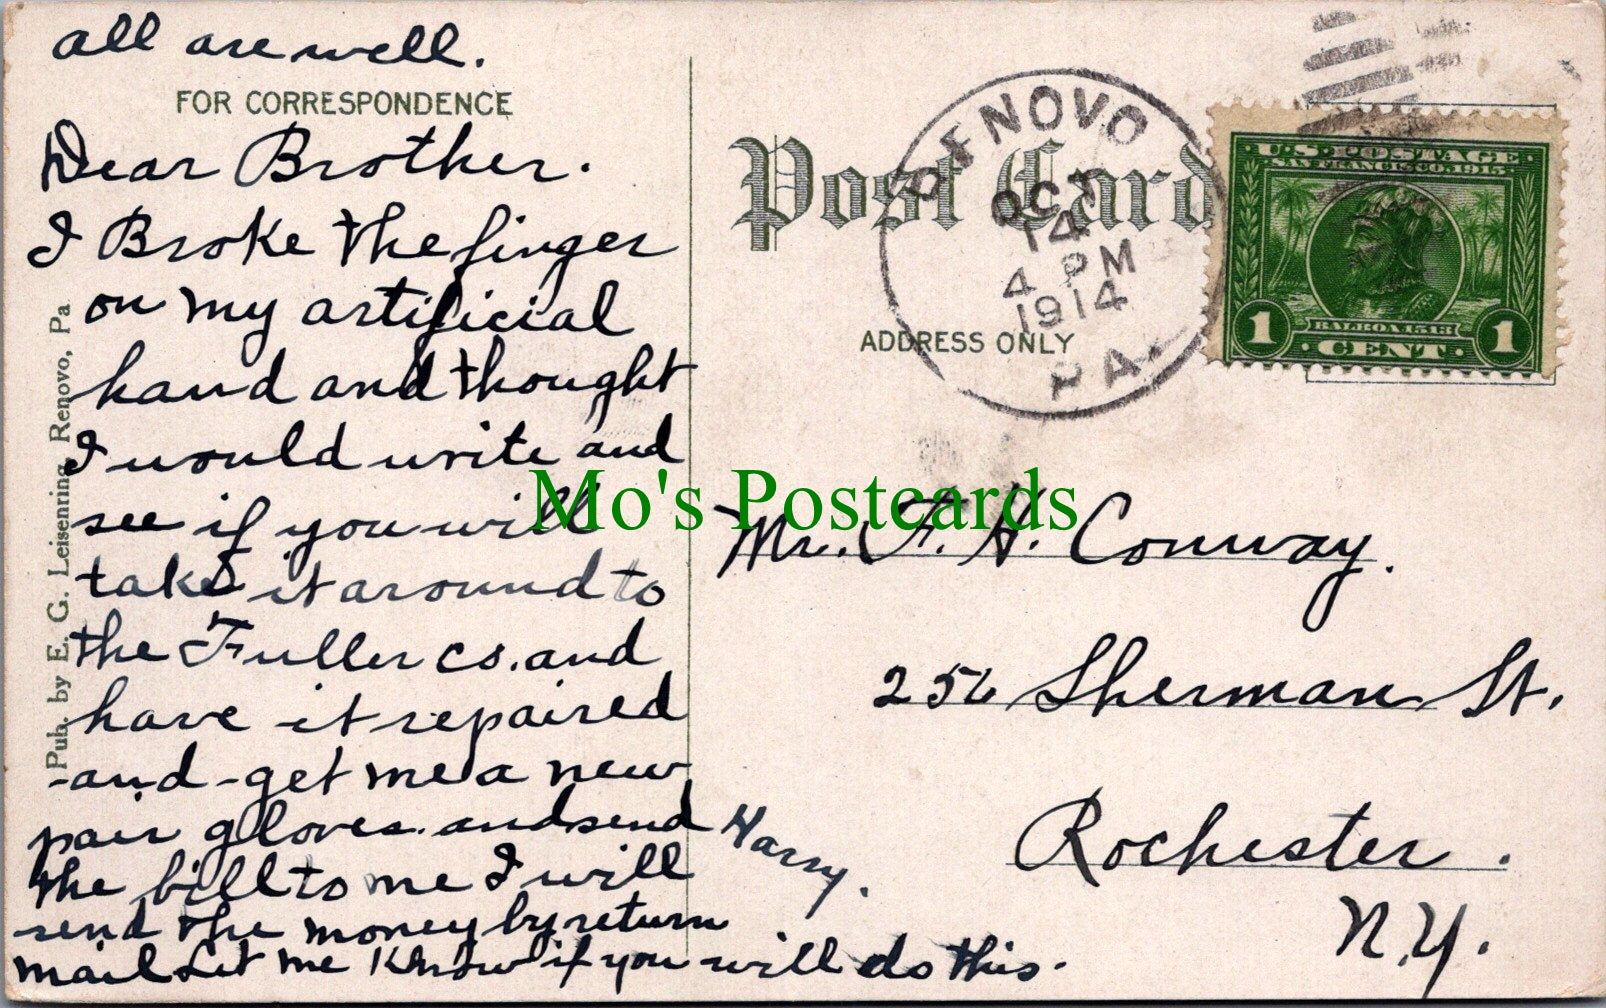 all are well.
FOR CORRESPONDENCE
Dear Brother.
I Broke the finger
on my artificial
hand and thought
I would write and
see if you will
take it around to
the Fuller co. and
have it repaired
and get me a new
pair gloves. and send
the bill to me I will
send the money by return
mail Let me Know if you will do this.
Harry.
Pub. by E. G. Leisenring, Renovo, Pa
Post Card
ADDRESS ONLY
RENOVO
OCT
14
4 PM
1914
PA.
U.S. POSTAGE
SAN FRANCISCO, 1915
BALBOA 1513
1 CENT 1
Mo's Postcards
Mr. F. H. Conway.
Sherman St.
Rochester.
N.Y.